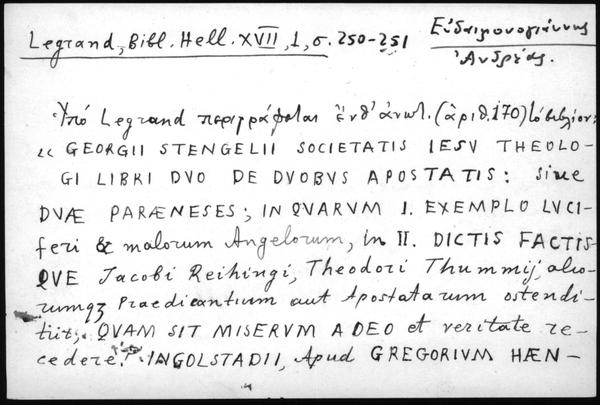 Legrand, Bibl. Hell. XVII, 1, σ. 250-251
Εὐδαιμονογιάννης
Ἀνδρέας.
Ὑπό Legrand περιγράφεται ἔνθ' ἀνωτ. (ἀριθ. 170) τό βιβλίον:
« GEORGII STENGELII SOCIETATIS IESV THEOLO-
GI LIBRI DVO DE DVOBVS APOSTATIS: sive
DVÆ PARÆNESES; IN QVARVM I. EXEMPLO LVCI-
feri & malorum Angelorum, in II. DICTIS FACTIS-
QVE Jacobi Reihingi, Theodori Thummij, alio-
rumqz Praedicantium aut Apostatarum ostendi-
tur, QVAM SIT MISERVM A DEO et veritate re-
cedere. INGOLSTADII, Apud GREGORIVM HÆN-